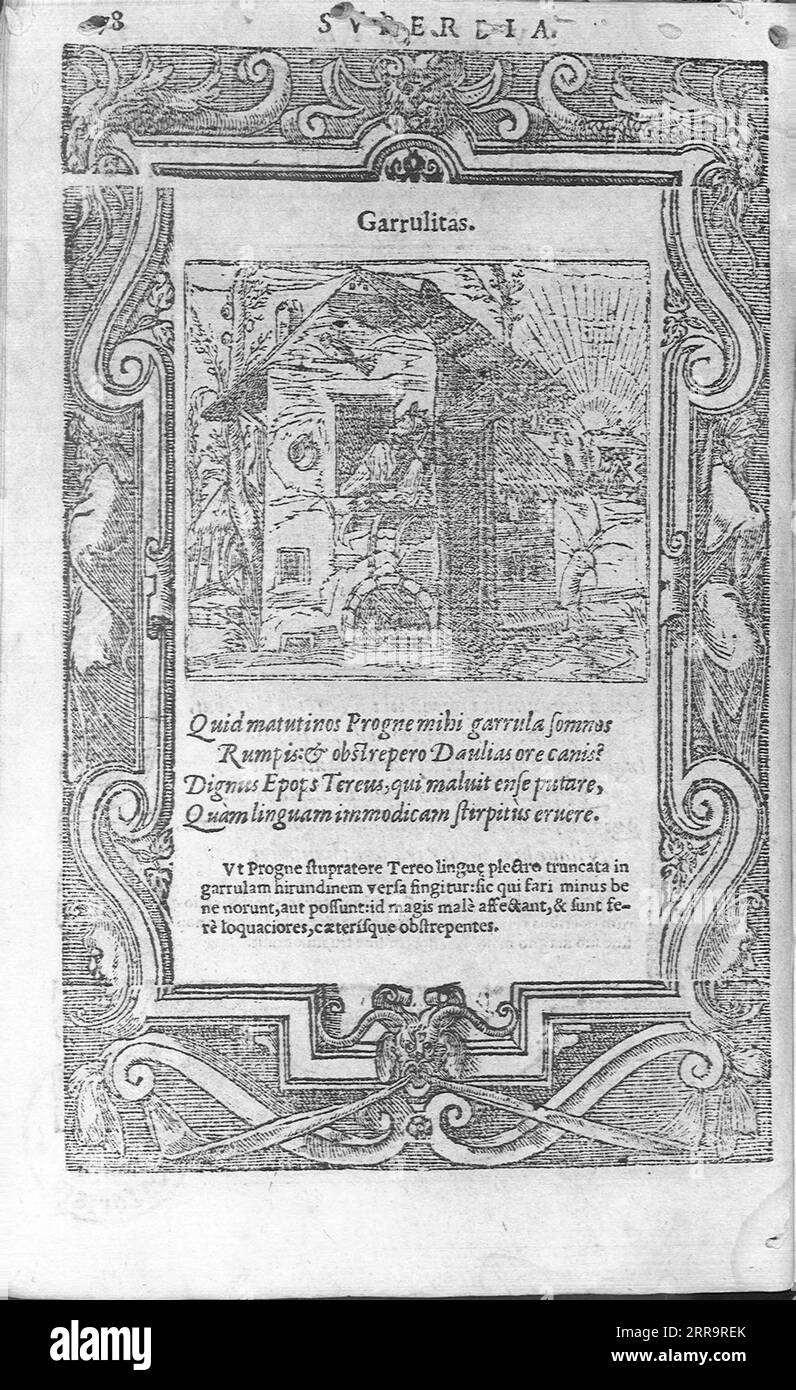 78 SVPERBIA.
Garrulitas.
Quid matutinos Progne mihi garrula ſomnos
Rumpis: & obſtrepero Daulias ore canis?
Dignus Epops Tereus, qui maluit enſe putare,
Quàm linguam immodicam ſtirpitùs eruere.
Vt Progne ſtupratore Tereo linguę plectro truncata in
garrulam hirundinem verſa fingitur: ſic qui fari minus be
ne norunt, aut poſſunt: id magis malè affectant, & ſunt fe-
rè loquaciores, cæteriſque obſtrepentes.
alamy
Image ID: 2RR9REK
www.alamy.com